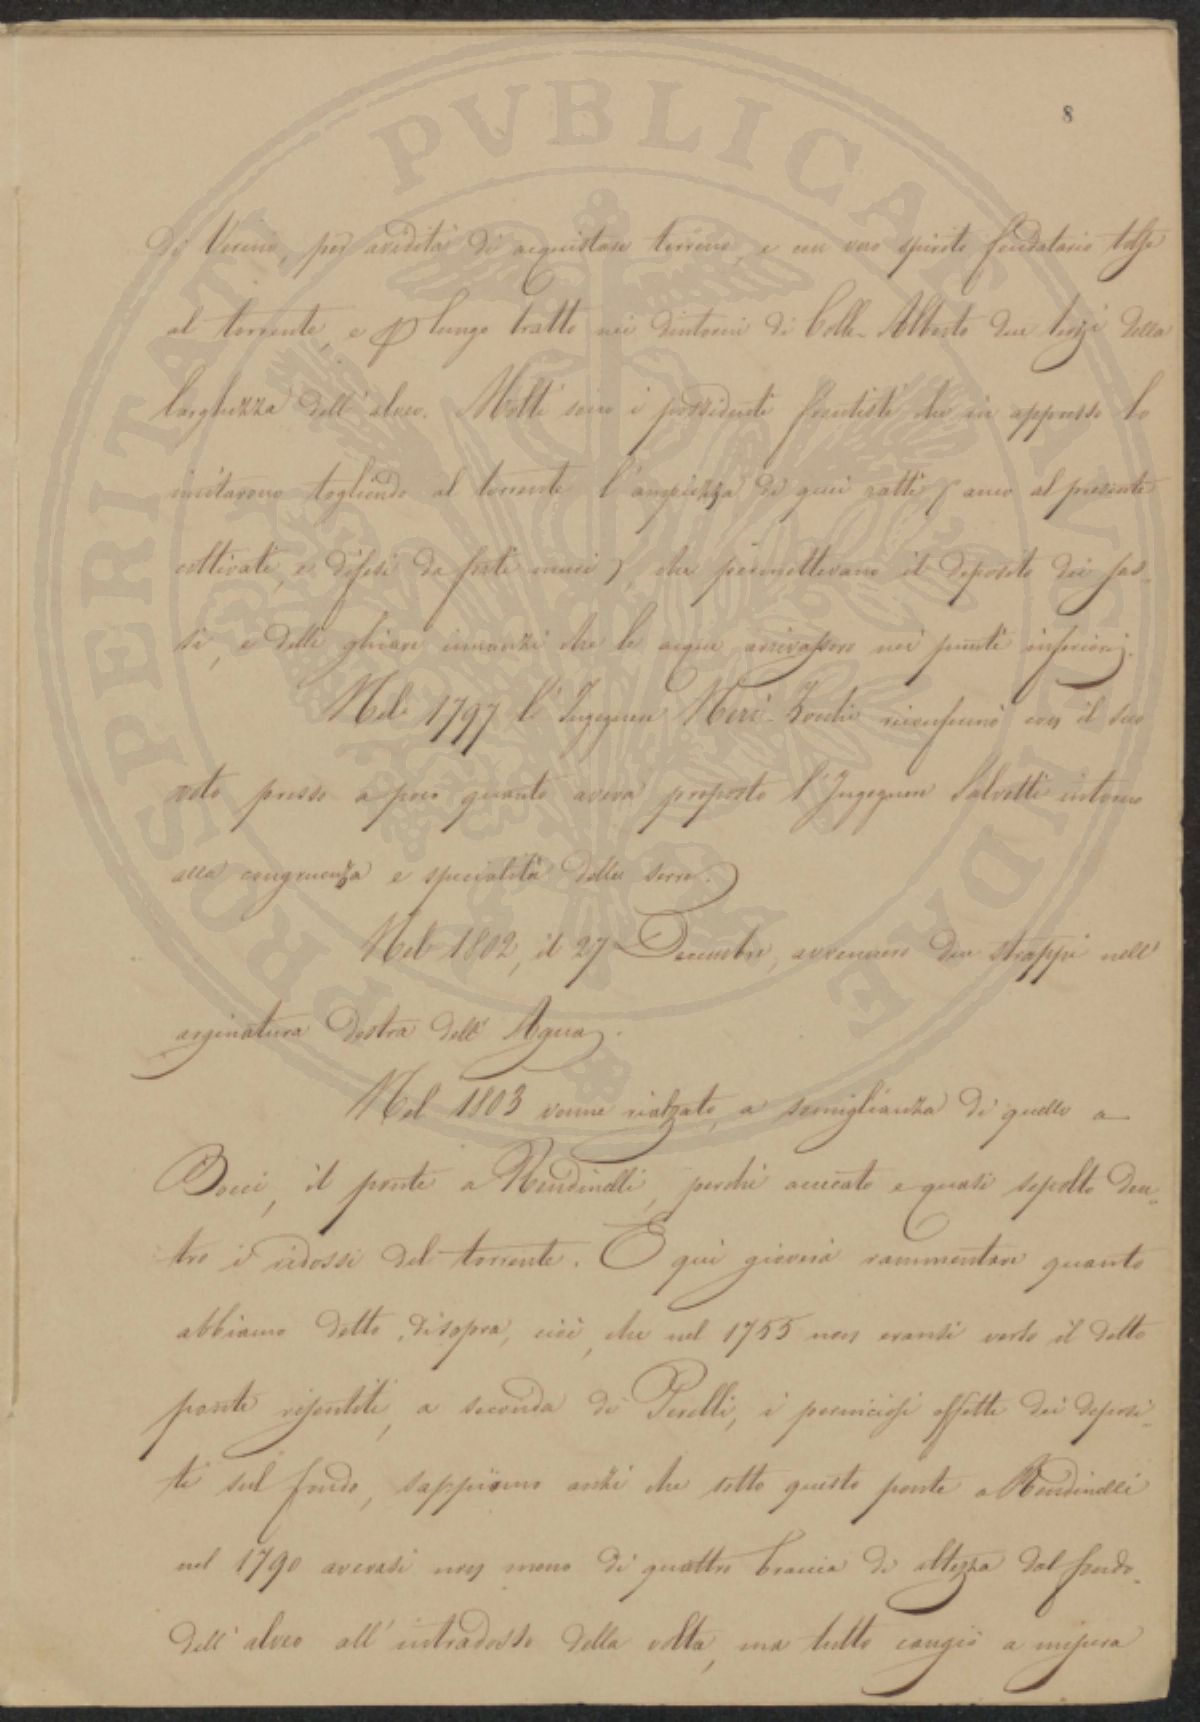 8
di Vernio, per avidità di acquistare terreno, e con vero spirito feudatario tolse
al torrente, e p lungo tratto nei dintorni di Colle-Alberto due terzi della
larghezza dell'alveo. Molti sono i possidenti frontisti che in appresso lo
imitarono togliendo al torrente l'ampiezza di quei ratti (anco al presente
coltivati, e difesi da forti muri), che permettevano il deposito dei sas-
si, e delle ghiare innanzi che le acque arrivassero nei punti inferiori.
Nel 1797 l'Ingegnere Neri-Zocchi riconfermò con il suo
voto presso a poco quanto aveva proposto l'Ingegnere Salvetti intorno
alla congruenza e specialità delle serre.
Nel 1802, il 27 Decembre, avvennero due strappi nell'
arginatura destra dell'Agna.
Nel 1803 venne rialzato, a somiglianza di quello a
Bocci, il ponte a Rendinelli, perchè accecato e quasi sepolto den-
tro i ridossi del torrente. E qui gioverà rammentare quanto
abbiamo detto disopra, cioè, che nel 1755 non eransi verso il detto
ponte risentiti, a seconda di Perelli, i perniciosi effetti dei deposi-
ti sul fondo, sappiamo anzi che sotto questo ponte a Rendinelli
nel 1790 averasi non meno di quattro braccia di altezza dal fondo
dell'alveo all'intradosso della volta, ma tutto cangiò a misura
PROSPERITATI PVBLICAE AVSVS DEDIT